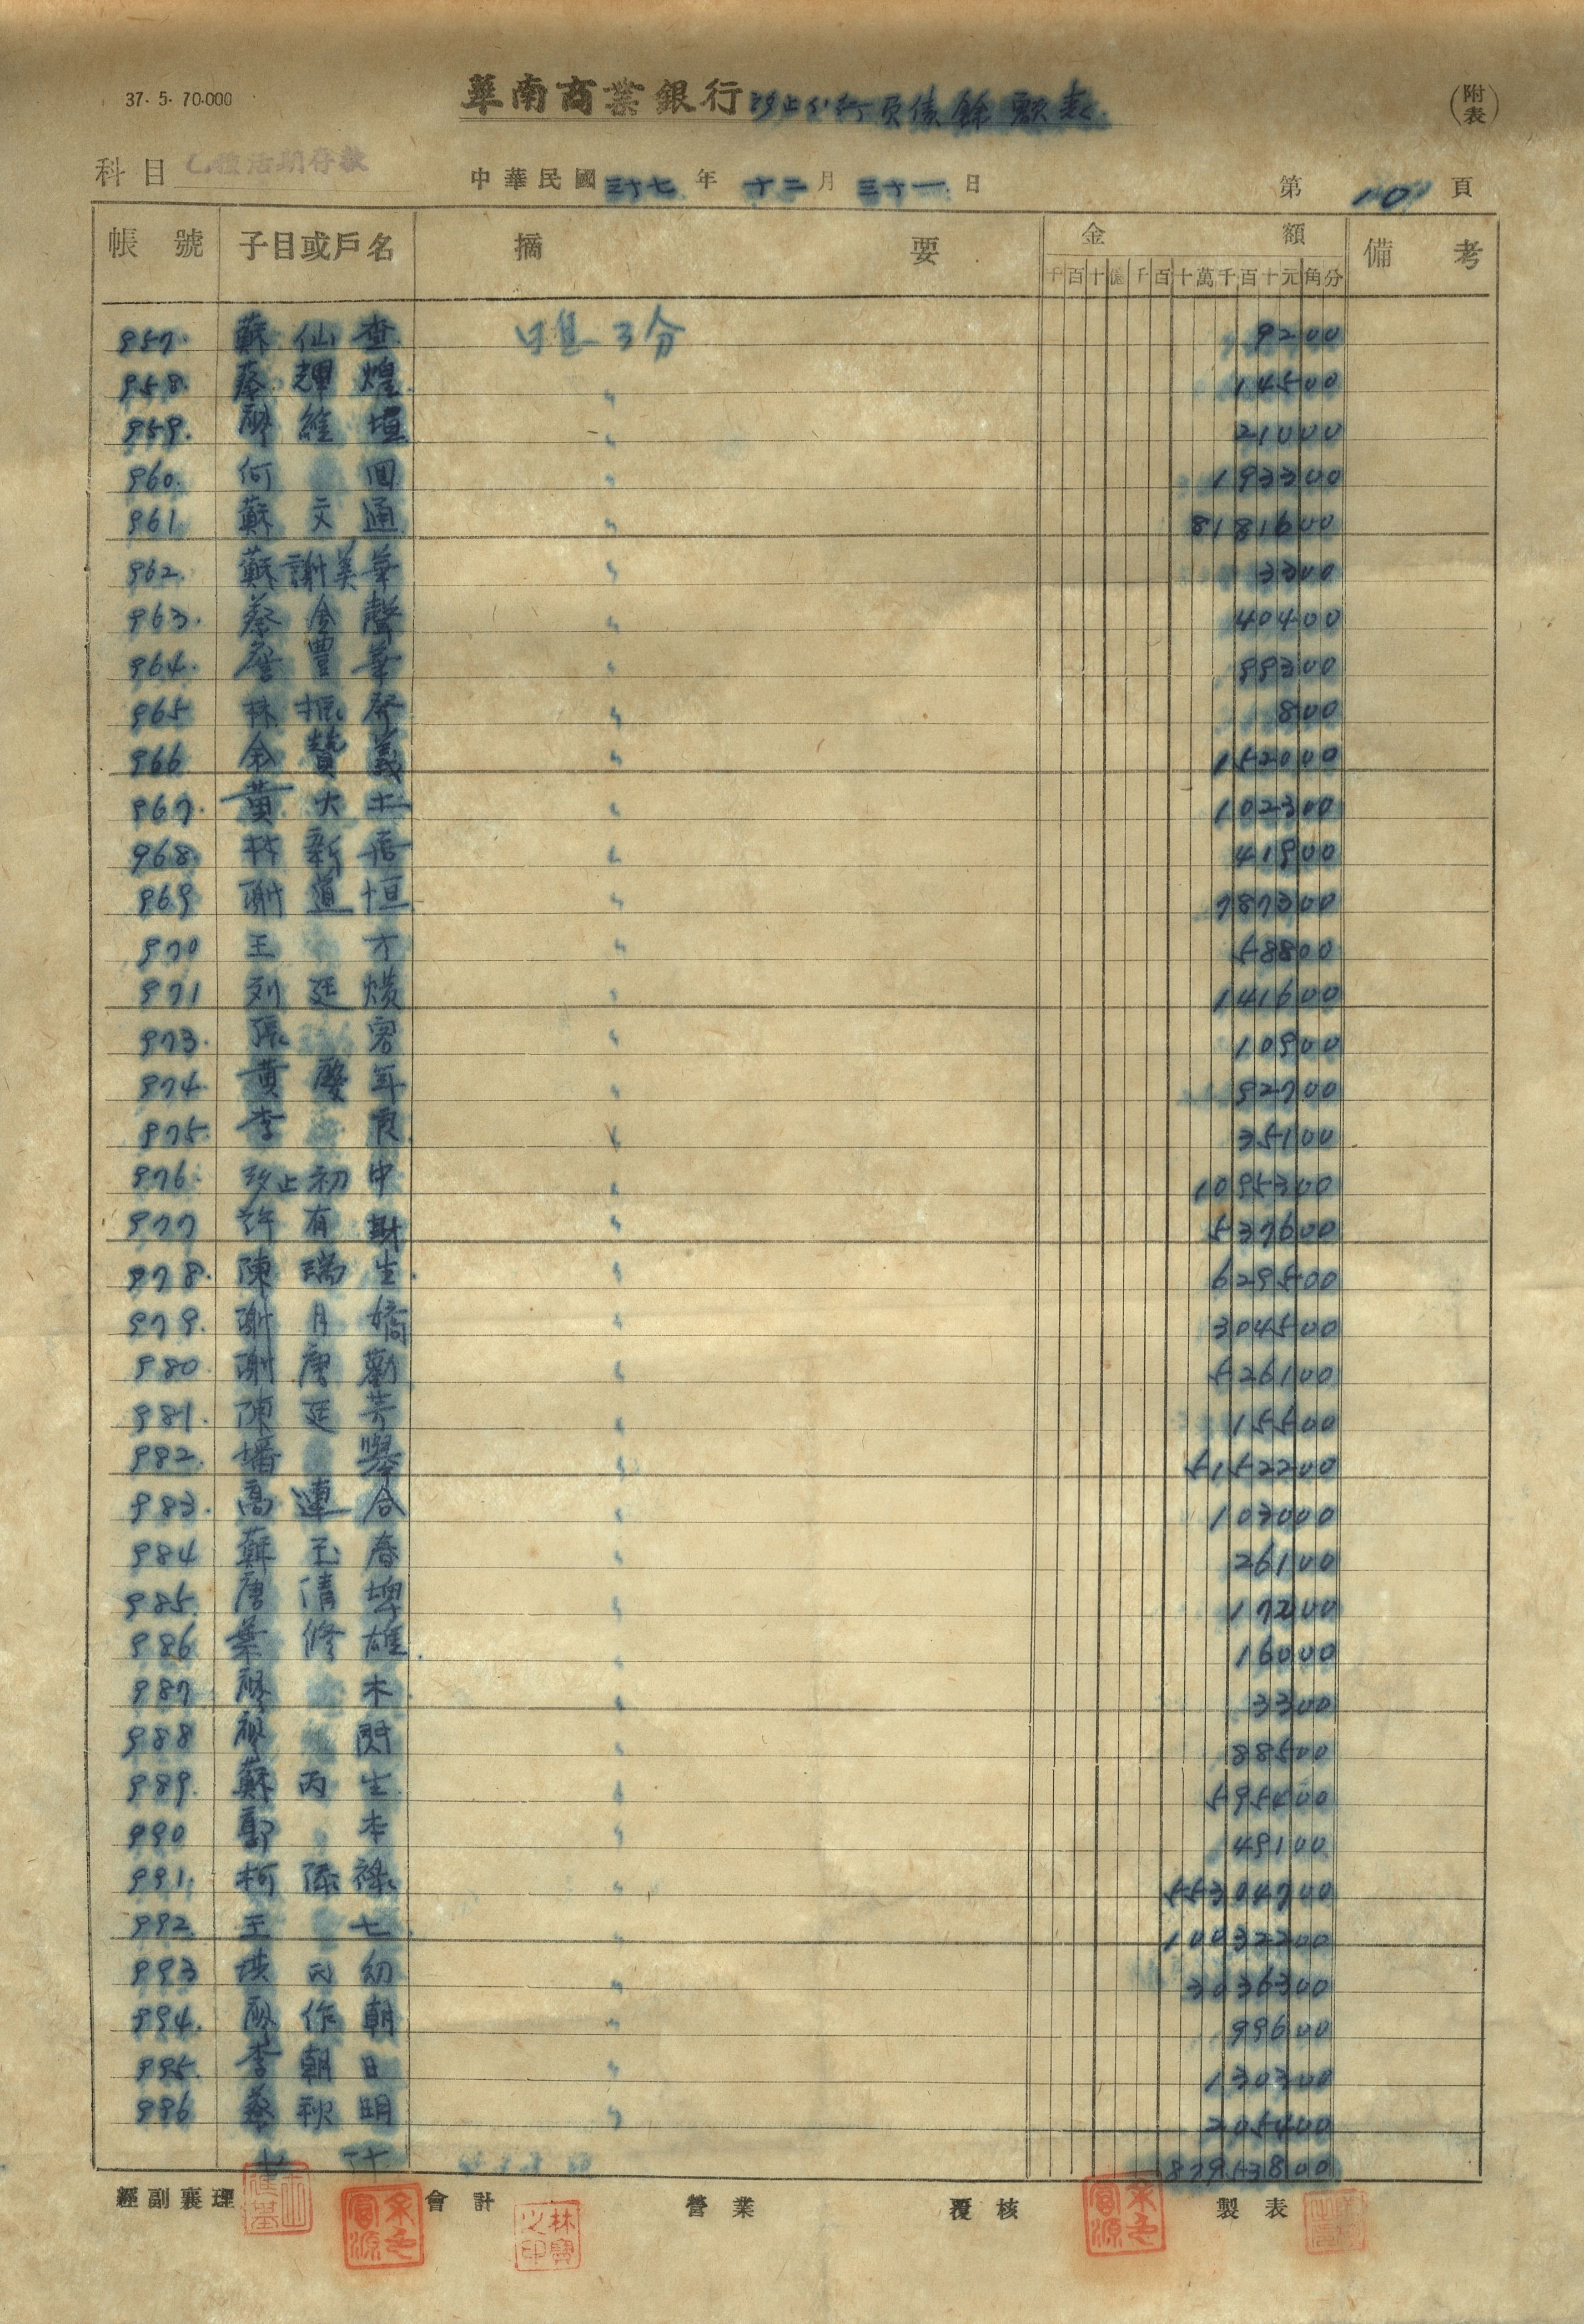 37. 5. 70.000
華南商業銀行汐止分行負債餘額表
(附表)
科目 乙種活期存款
中華民國三十七年十二月三十一日
第 101 頁
帳號 子目或戶名 摘要 金額 備考
千百十億千百十萬千百十元角分
957. 蘇仙查 日息 3分 9200
958. 蔡輝煌 〃 14500
959. 廖維垣 〃 21000
960. 何回 〃 193300
961. 蘇文通 〃 8181600
962. 蘇謝美華 〃 3300
963. 蔡金聲 〃 40400
964. 詹豐華 〃 99300
965 林振聲 〃 800
966 余贊義 〃 152000
967. 黃大土 〃 102300
968. 林新居 〃 41900
969 謝道恒 〃 787300
970 王才 〃 58800
971 列廷 〃 141600
973. 張容 〃 10900
974. 黃慶年 〃 92700
975. 李 〃 35100
976. 汐止初中 〃 1095300
977 許有財 〃 537600
978. 陳瑞生 〃 629500
979. 謝月嬌 〃 304500
980. 謝唐勤 〃 526100
981. 陳廷芳 〃 15500
982. 舉 〃 5152200
983. 高連合 〃 103000
984 蘇玉春 〃 26100
985. 唐清埤 〃 17200
986 葉修雄 〃 16000
987 廖木 〃 3300
988 廖 〃 88500
989. 蘇丙生 〃 595400
990 鄭本 〃 49100
991. 柯添祿 〃 55304700
992. 王七 〃 10032200
993 幼 〃 3036300
994. 廖作朝 〃 99600
995. 李朝日 〃 130300
996 蔡秋明 〃 205400
小計 87953800
經副襄理 會計 營業 覆核 製表
林寶之印